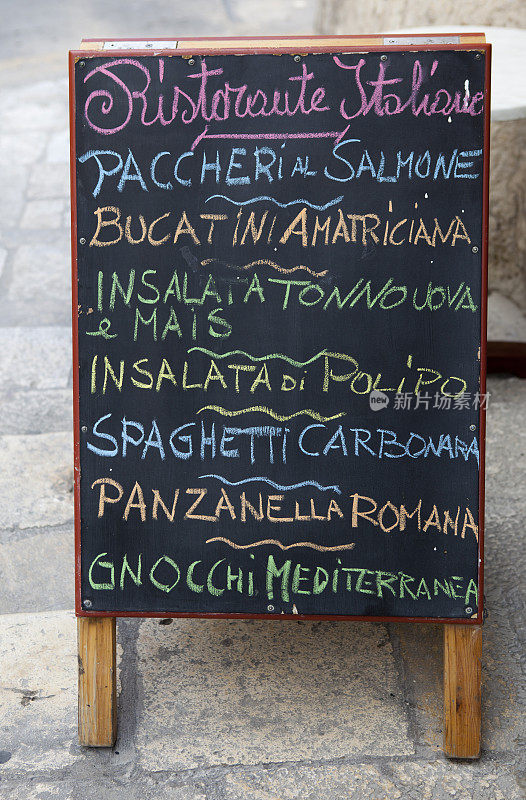 Ristorante Italiano
PACCHERI AL SALMONE
BUCATINI AMATRICIANA
INSALATA TONNO UOVA
e MAIS
INSALATA DI POLIPO
SPAGHETTI CARBONARA
PANZANELLA ROMANA
GNOCCHI MEDITERRANEA
new 新物联网